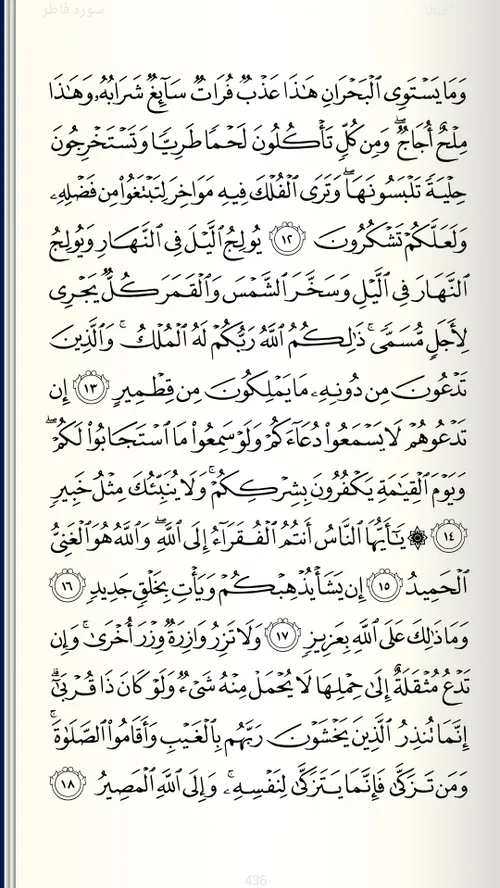 سورة فاطر
وَمَا يَسْتَوِى ٱلْبَحْرَانِ هَـٰذَا عَذْبٌ فُرَاتٌ سَآئِغٌ شَرَابُهُۥ وَهَـٰذَا
مِلْحٌ أُجَاجٌ ۖ وَمِن كُلٍّ تَأْكُلُونَ لَحْمًا طَرِيًّا وَتَسْتَخْرِجُونَ
حِلْيَةً تَلْبَسُونَهَا ۖ وَتَرَى ٱلْفُلْكَ فِيهِ مَوَاخِرَ لِتَبْتَغُوا۟ مِن فَضْلِهِۦ
وَلَعَلَّكُمْ تَشْكُرُونَ ١٢ يُولِجُ ٱلَّيْلَ فِى ٱلنَّهَارِ وَيُولِجُ
ٱلنَّهَارَ فِى ٱلَّيْلِ وَسَخَّرَ ٱلشَّمْسَ وَٱلْقَمَرَ كُلٌّ يَجْرِى
لِأَجَلٍ مُّسَمًّى ۚ ذَٰلِكُمُ ٱللَّهُ رَبُّكُمْ لَهُ ٱلْمُلْكُ ۚ وَٱلَّذِينَ
تَدْعُونَ مِن دُونِهِۦ مَا يَمْلِكُونَ مِن قِطْمِيرٍ ١٣ إِن
تَدْعُوهُمْ لَا يَسْمَعُوا۟ دُعَآءَكُمْ وَلَوْ سَمِعُوا۟ مَا ٱسْتَجَابُوا۟ لَكُمْ ۖ
وَيَوْمَ ٱلْقِيَـٰمَةِ يَكْفُرُونَ بِشِرْكِكُمْ ۚ وَلَا يُنَبِّئُكَ مِثْلُ خَبِيرٍ
١٤ ۞ يَـٰٓأَيُّهَا ٱلنَّاسُ أَنتُمُ ٱلْفُقَرَآءُ إِلَى ٱللَّهِ ۖ وَٱللَّهُ هُوَ ٱلْغَنِىُّ
ٱلْحَمِيدُ ١٥ إِن يَشَأْ يُذْهِبْكُمْ وَيَأْتِ بِخَلْقٍ جَدِيدٍ ١٦
وَمَا ذَٰلِكَ عَلَى ٱللَّهِ بِعَزِيزٍ ١٧ وَلَا تَزِرُ وَازِرَةٌ وِزْرَ أُخْرَىٰ ۚ وَإِن
تَدْعُ مُثْقَلَةٌ إِلَىٰ حِمْلِهَا لَا يُحْمَلْ مِنْهُ شَىْءٌ وَلَوْ كَانَ ذَا قُرْبَىٰٓ ۗ
إِنَّمَا تُنذِرُ ٱلَّذِينَ يَخْشَوْنَ رَبَّهُم بِٱلْغَيْبِ وَأَقَامُوا۟ ٱلصَّلَوٰةَ ۚ
وَمَن تَزَكَّىٰ فَإِنَّمَا يَتَزَكَّىٰ لِنَفْسِهِۦ ۚ وَإِلَى ٱللَّهِ ٱلْمَصِيرُ ١٨
436